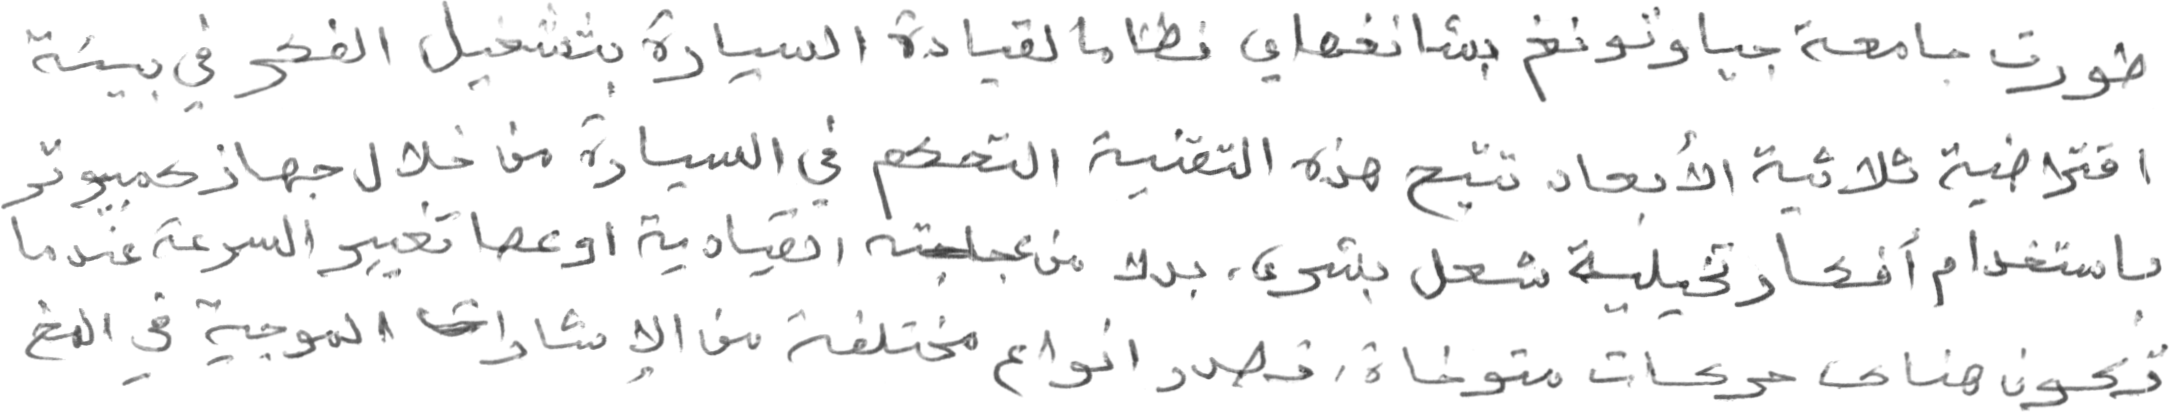 طورت جامعة جياوتونغ بشانغهاي نظاما لقيادة السيارة بتشغيل الفكر في بيئة
افتراضية ثلاثية الأبعاد تتيح هذه التقنية التحكم في السيارة من خلال جهاز كمبيوتر
باستخدام أفكار تخيلية شعل بشرى، بدلا من عجلته القيادية او عصا تغيير السرعة عندما
تكون هناك حركات متوخاة، تصدر انواع مختلفة من الإشارات الموجية في المخ